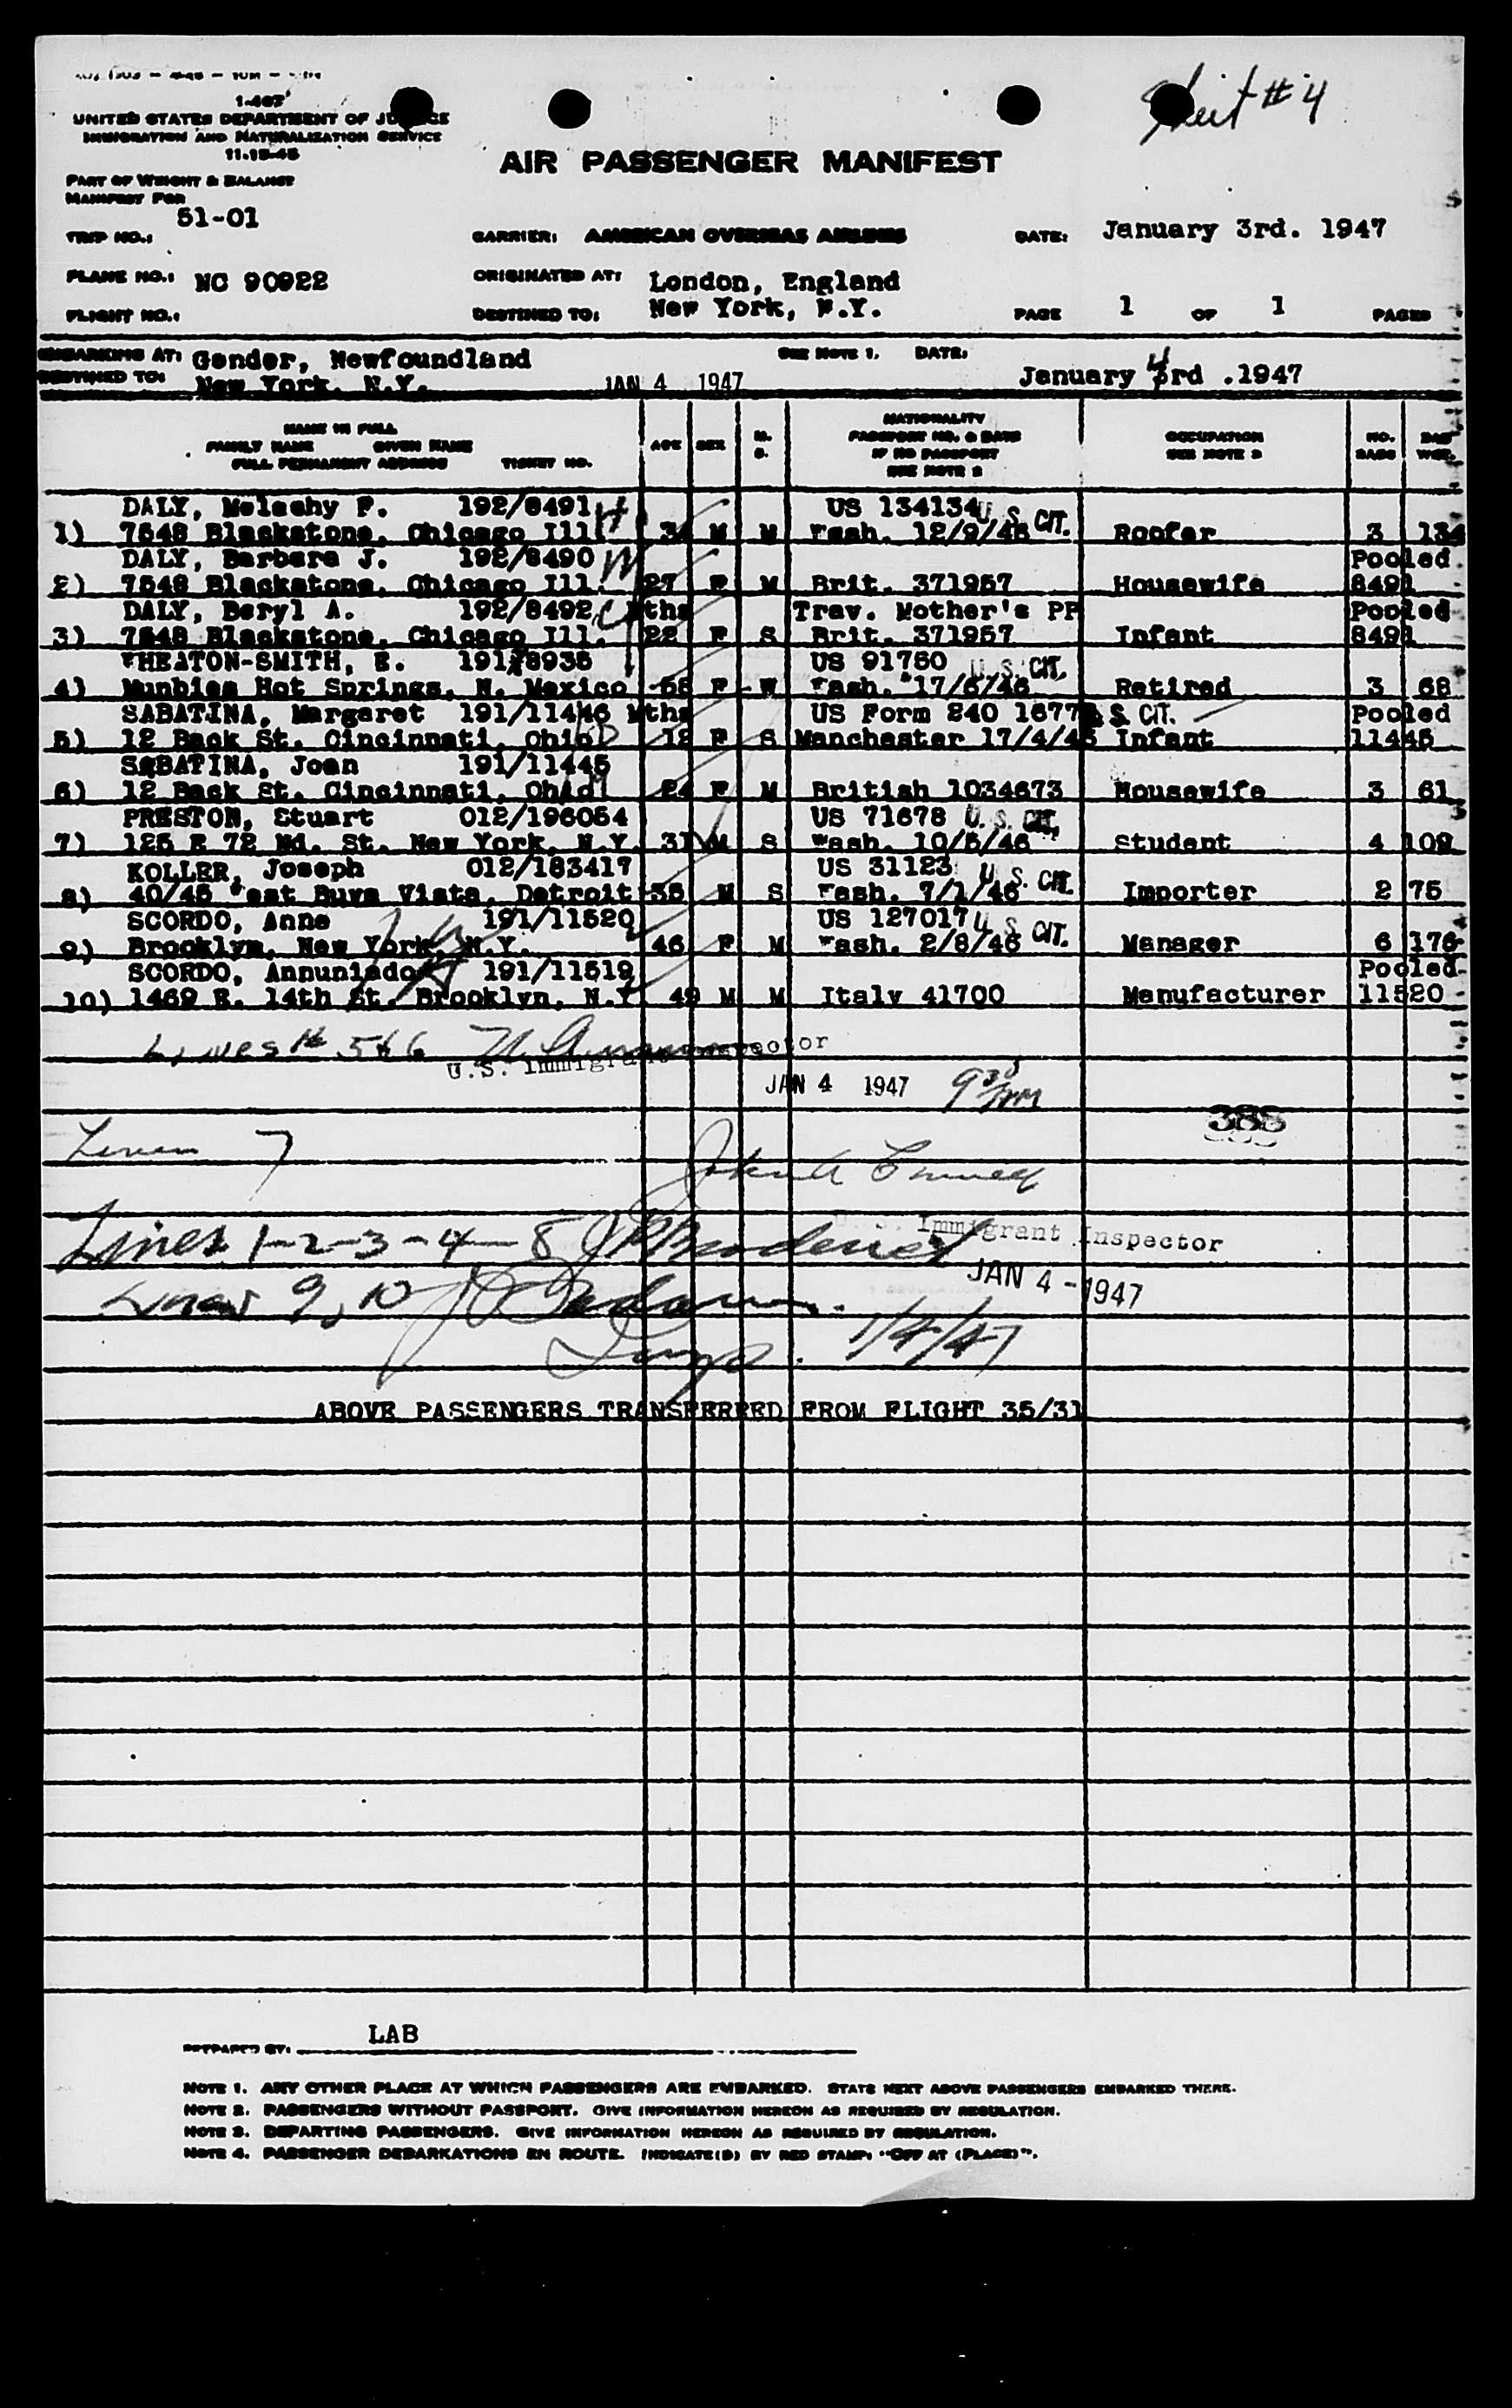 Sheet # 4
I-467
UNITED STATES DEPARTMENT OF JUSTICE
IMMIGRATION AND NATURALIZATION SERVICE
11-15-45
AIR PASSENGER MANIFEST
PART OF WEIGHT & BALANCE
MANIFEST FOR
TRIP NO.: 51-01 CARRIER: AMERICAN OVERSEAS AIRLINES DATE: January 3rd. 1947
PLANE NO.: NC 90922 ORIGINATED AT: London, England
FLIGHT NO.: DESTINED TO: New York, N.Y. PAGE 1 OF 1 PAGES
EMBARKING AT: Gander, Newfoundland SEE NOTE 1. DATE:
DESTINED TO: New York, N.Y. JAN 4 1947 January 4 3rd .1947
NAME IN FULL
FAMILY NAME GIVEN NAME
FULL PERMANENT ADDRESS TICKET NO.
AGE SEX M. S.
NATIONALITY
PASSPORT NO. & DATE
IF NO PASSPORT
SEE NOTE 2
OCCUPATION
SEE NOTE 3
NO. BAGS BAG WGT.
DALY, Melachy P. 192/8491 US 134134 U. S. CIT.
1) 7548 Blackstone, Chicago Ill. 34 M M Wash. 12/9/46 Roofer 3 134
DALY, Barbara J. 192/8490 Pooled
2) 7548 Blackstone, Chicago Ill. 27 F M Brit. 371957 Housewife 8491
DALY, Beryl A. 192/8492 Mths Trav. Mother's PP Pooled
3) 7548 Blackstone, Chicago Ill. 22 F S Brit. 371957 Infant 8491
WHEATON-SMITH, E. 191/8935 US 91750 U. S. CIT.
4) Munbies Hot Springs, N. Mexico 56 F W Wash. 17/6/46 Retired 3 68
SABATINA, Margaret 191/11446 Mths US Form 240 1677 U. S. CIT. Pooled
5) 12 Back St. Cincinnati, Ohio 12 F S Manchester 17/4/46 Infant 11445
SABATINA, Joan 191/11445
6) 12 Back St. Cincinnati, Ohio 24 F M British 1034673 Housewife 3 61
PRESTON, Stuart 012/196054 US 71678 U. S. CIT.
7) 125 E 72 Nd. St. New York, N.Y. 31 M S Wash. 10/5/46 Student 4 109
KOLLER, Joseph 012/183417 US 31123 U. S. CIT.
8) 40/45 West Buva Vista, Detroit 35 M S Wash. 7/1/46 Importer 2 75
SCORDO, Anna 191/11520 US 127017 U. S. CIT.
9) Brooklyn, New York, N.Y. 46 F M Wash. 2/8/46 Manager 6 176
SCORDO, Annuniado 191/11519 Pooled
10) 1469 E. 14th St. Brooklyn, N.Y 49 M M Italy 41700 Manufacturer 11520
Lines # 5 & 6
U.S. Immigrant Inspector
JAN 4 1947 9 30 PM
388
Lines 7
Lines 1-2-3-4-8
U. S. Immigrant Inspector
JAN 4 - 1947
Lines 9, 10
Insp. 1/4/47
ABOVE PASSENGERS TRANSFERRED FROM FLIGHT 35/31
PREPARED BY: LAB
NOTE 1. ANY OTHER PLACE AT WHICH PASSENGERS ARE EMBARKED. STATE NEXT ABOVE PASSENGERS EMBARKED THERE.
NOTE 2. PASSENGERS WITHOUT PASSPORT. GIVE INFORMATION HEREON AS REQUIRED BY REGULATION.
NOTE 3. DEPARTING PASSENGERS. GIVE INFORMATION HEREON AS REQUIRED BY REGULATION.
NOTE 4. PASSENGER DEBARKATIONS EN ROUTE. INDICATE(D) BY RED STAMP: "OFF AT (PLACE)".